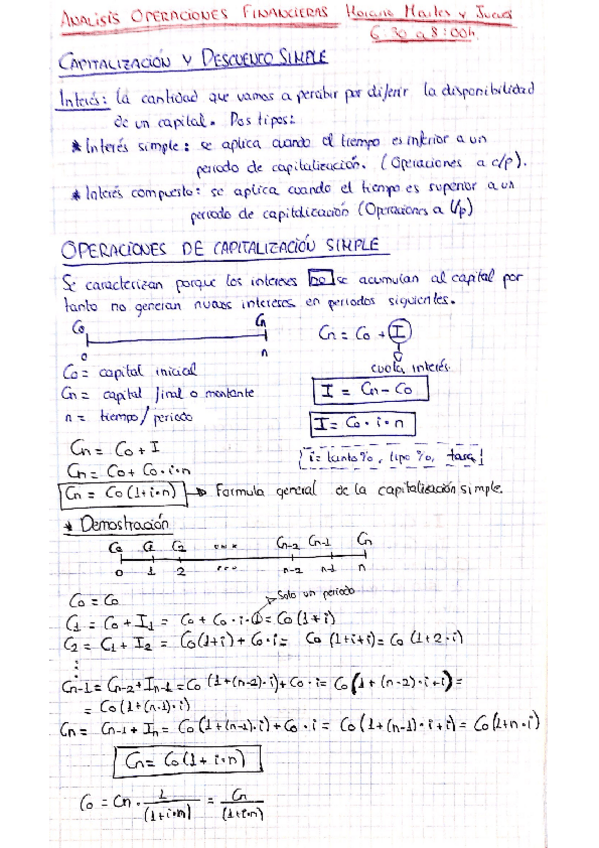 ANALISIS OPERACIONES FINANCIERAS Horario Martes y Jueves
6:30 a 8:00h.
CAPITALIZACIÓN Y DESCUENTO SIMPLE
Interés: la cantidad que vamos a percibir por diferir la disponibilidad
de un capital. Dos tipos:
* Interés simple: se aplica cuando el tiempo es inferior a un
periodo de capitalización. (Operaciones a c/p).
* Interés compuesto: se aplica cuando el tiempo es superior a un
periodo de capitalización (Operaciones a l/p)
OPERACIONES DE CAPITALIZACIÓN SIMPLE
Se caracterizan porque los intereses no se acumulan al capital por
tanto no generan nuevos intereses en periodos siguientes.
Co Cn
0 n
Cn = Co + I
cuota interés
Co = capital inicial
Cn = capital final o montante
n = tiempo/periodo
I = Cn - Co
I = Co · i · n
i = tanto %, tipo %, tasa
Cn = Co + I
Cn = Co + Co · i · n
Cn = Co (1+i·n) → Formula general de la capitalización simple.
* Demostración
Co C1 C2 ... Cn-2 Cn-1 Cn
0 1 2 ... n-2 n-1 n
Solo un periodo
Co = Co
C1 = Co + I1 = Co + Co · i · 1 = Co (1+i)
C2 = C1 + I2 = Co(1+i) + Co · i = Co (1+i+i) = Co (1+2·i)
⋮
Cn-1 = Cn-2 + In-1 = Co (1+(n-2)·i) + Co · i = Co (1+(n-2)·i+i) =
= Co (1+(n-1)·i)
Cn = Cn-1 + In = Co (1+(n-1)·i) + Co · i = Co (1+(n-1)·i+i) = Co (1+n·i)
Cn = Co (1+i·n)
Co = Cn · 1/(1+i·n) = Cn/(1+i·n)